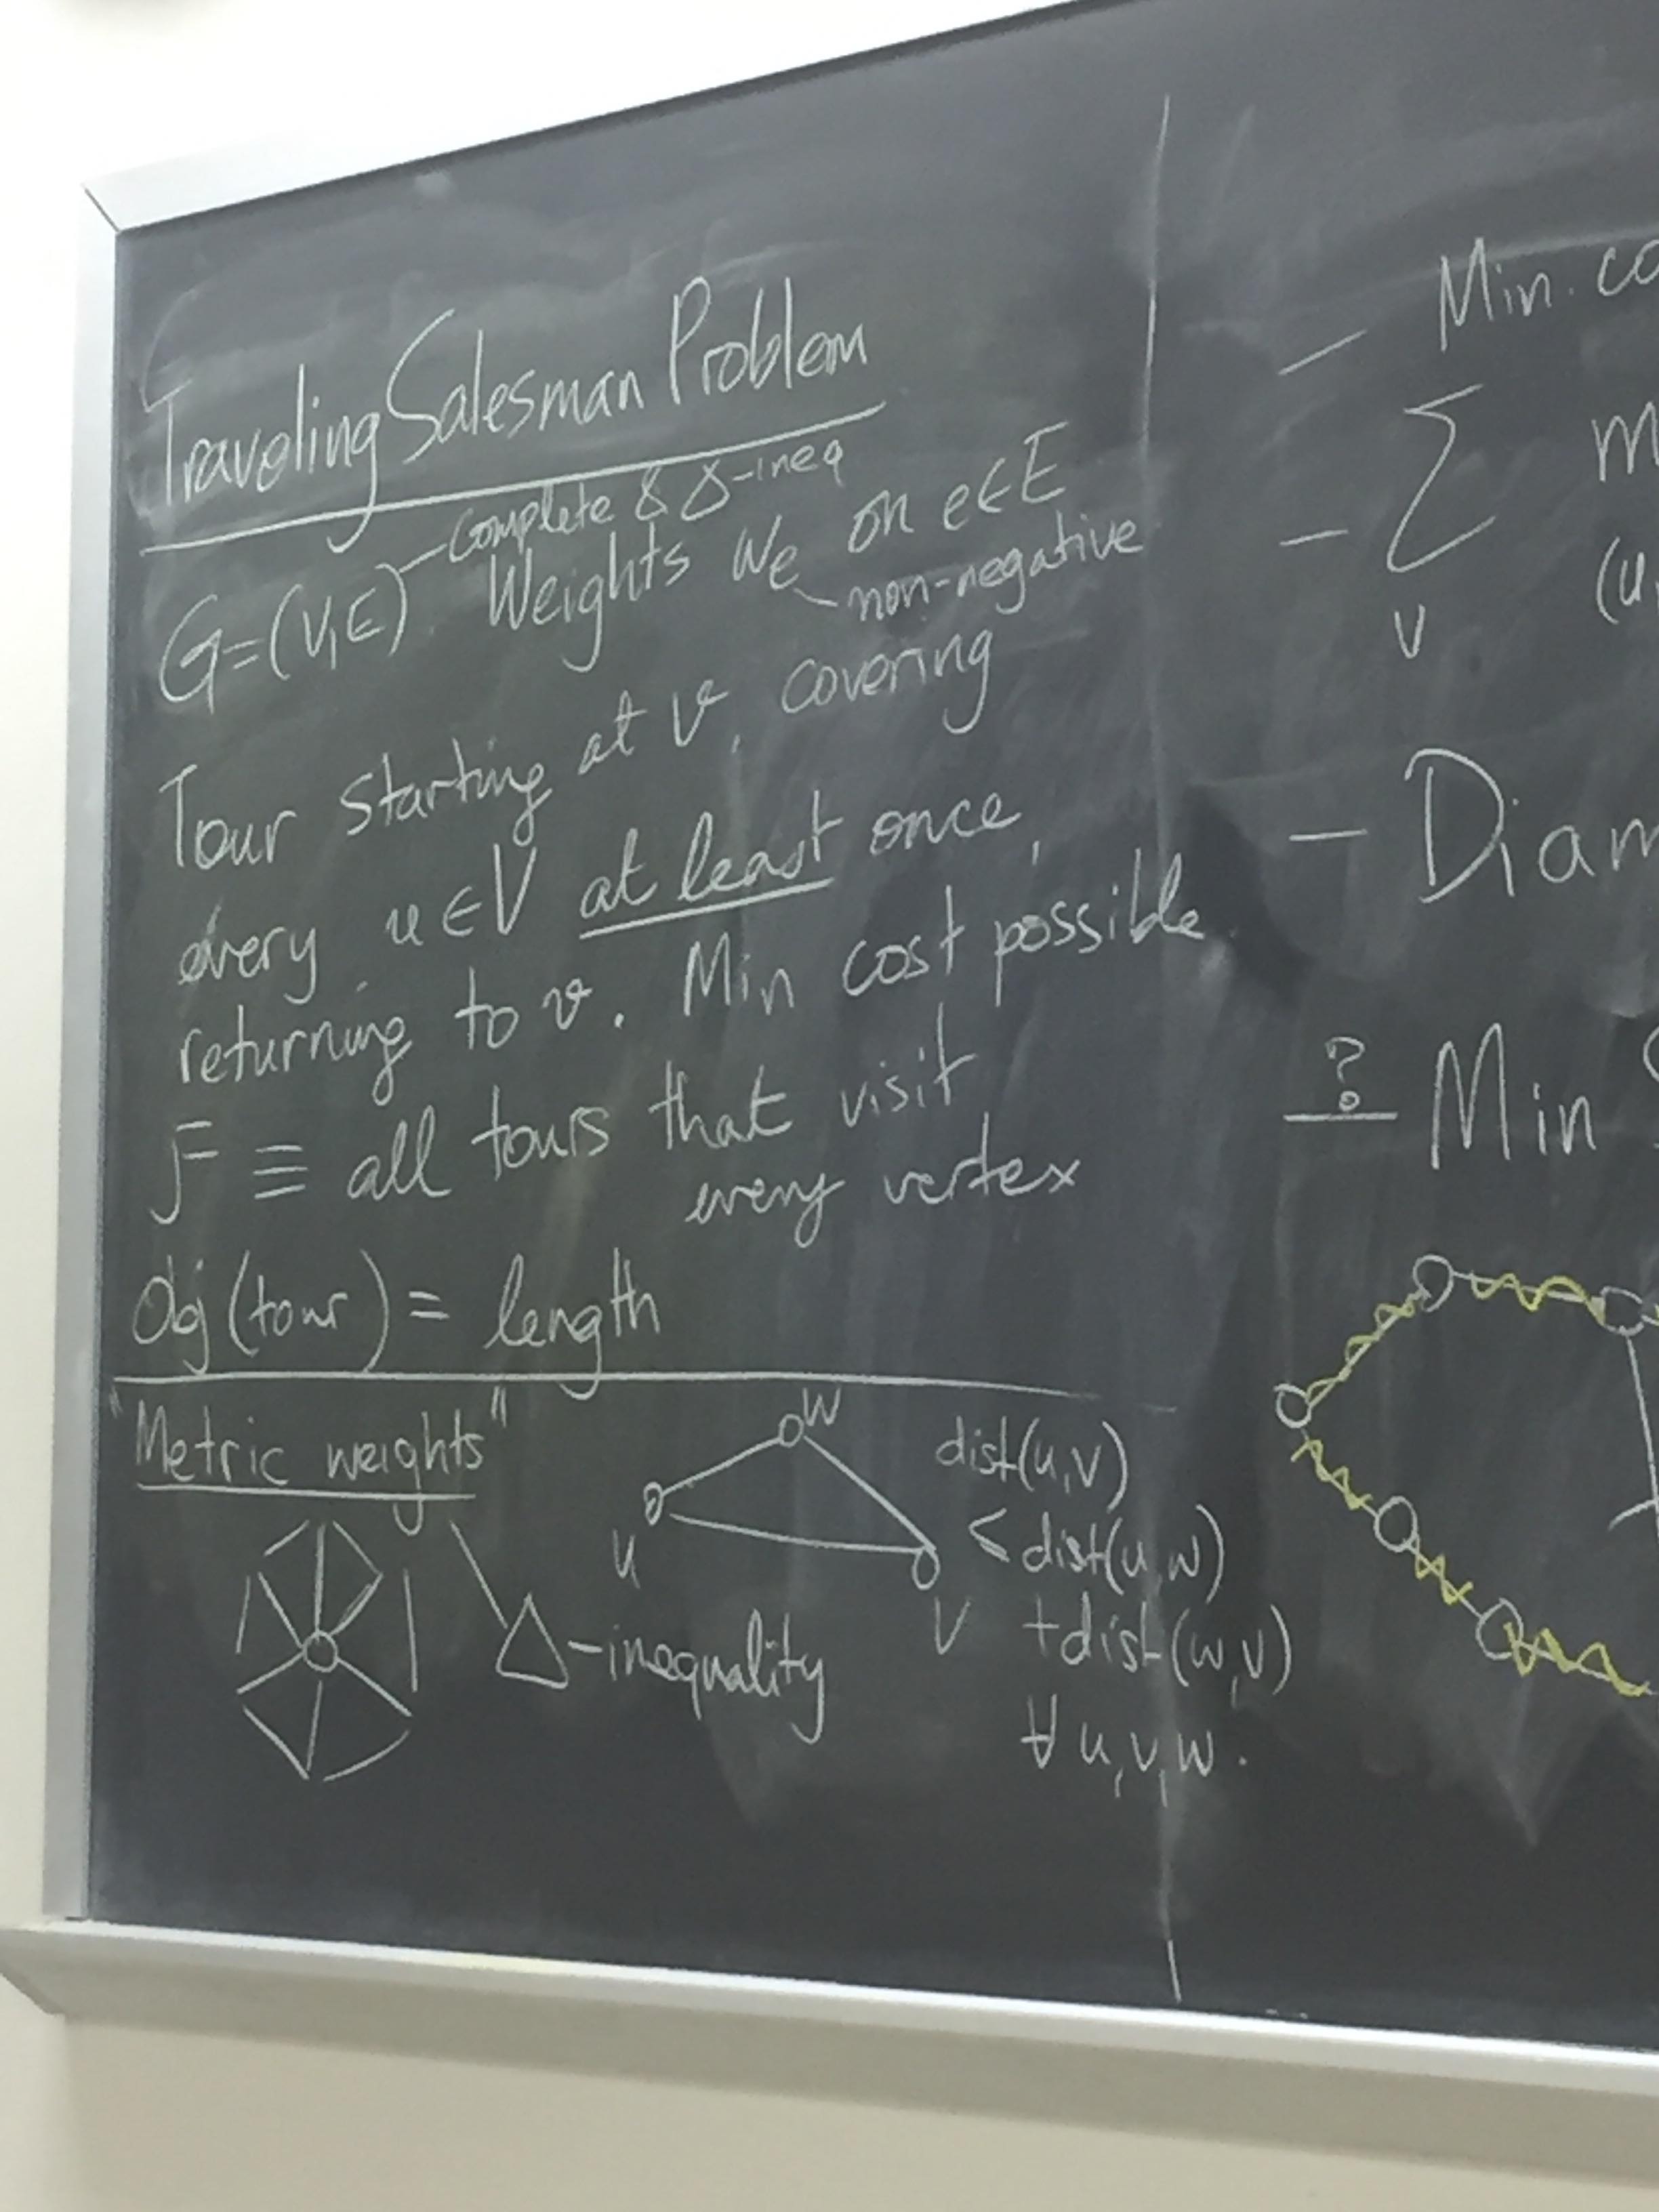 Traveling Salesman Problem
complete & Δ-ineq
G=(V,E) Weights We on e∈E
non-negative
Tour starting at v, covering
every u∈V at least once,
returning to v. Min cost possible.
F ≡ all tours that visit
every vertex
Obj(tour) = length
"Metric weights"
Δ-inequality
w
u
v
dist(u,v)
≤ dist(u,w)
+dist(w,v)
∀ u,v,w.
- Min. co
- Σ m
v (u,
- Diam
? Min